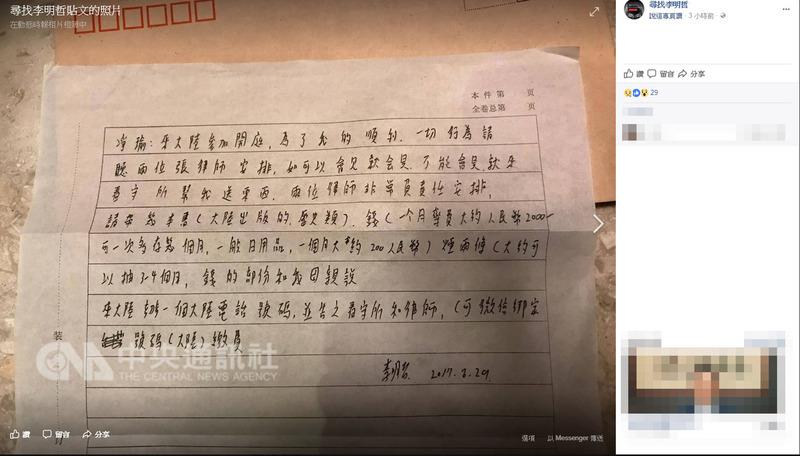 尋找李明哲貼文的照片
在動態時報相片相簿中
本件第 页
全卷总第 页
淨瑜：來大陸參加開庭，為了我的順利，一切行為請
聽兩位張律師安排，如可以會見就會見，不能會見就來
看守所幫我送東西，兩位律師非常負責任安排，
請帶幾本書（大陸出版的，歷史類），錢（一個月
大約人民幣2000
可一次多存幾個月，一般日用品，一個月大約200人民幣）煙兩條（大約可
以抽3-4個月，錢的部份和我母親說
來大陸辦一個大陸電話號碼，並告之看守所和律師，（可微信綁定
號碼（大陸）繳費
李明哲 2017.8.29
装
订
中央通訊社
CNA THE CENTRAL NEWS AGENCY
讚 留言 分享
選項 以 Messenger 傳送
尋找李明哲
說這專頁讚 · 3 小時前 ·
讚 留言 分享
29